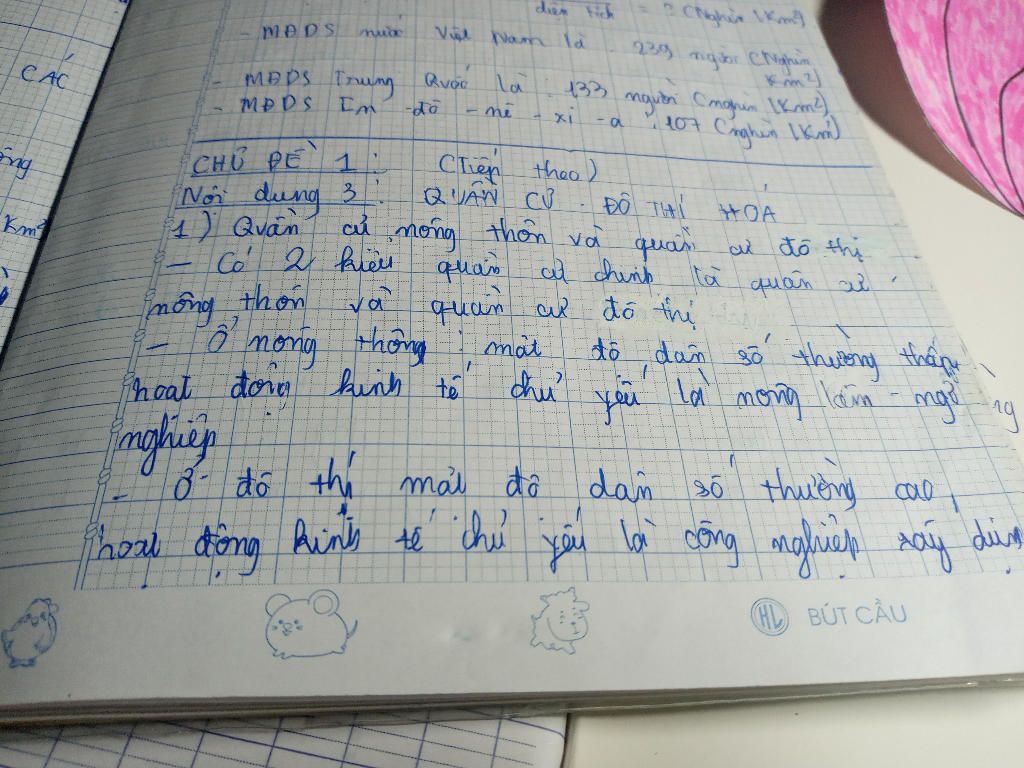 diện tích = ? (Nghìn /Km²)
- MĐDS nước Việt Nam là : 239 người (Nghìn Km²)
- MĐDS Trung Quốc là : 133 người (nghìn /Km²)
- MĐDS In - đô - nê - xi - a : 107 (nghìn /Km²)
CHỦ ĐỀ 1 : (Tiếp theo)
Nội dung 3 : QUẦN CƯ . ĐÔ THỊ HÓA
1) Quần cư nông thôn và quần cư đô thị
- Có 2 kiểu quần cư chính là quần cư
nông thôn và quần cư đô thị
- Ở nông thông : mật độ dân số thường thấp,
hoạt động kinh tế chủ yếu là nông lâm - ngư
nghiệp
- Ở đô thị mật độ dân số thường cao,
hoạt động kinh tế chủ yếu là công nghiệp xây dựng
CÁC
Km²
HL BÚT CẦU